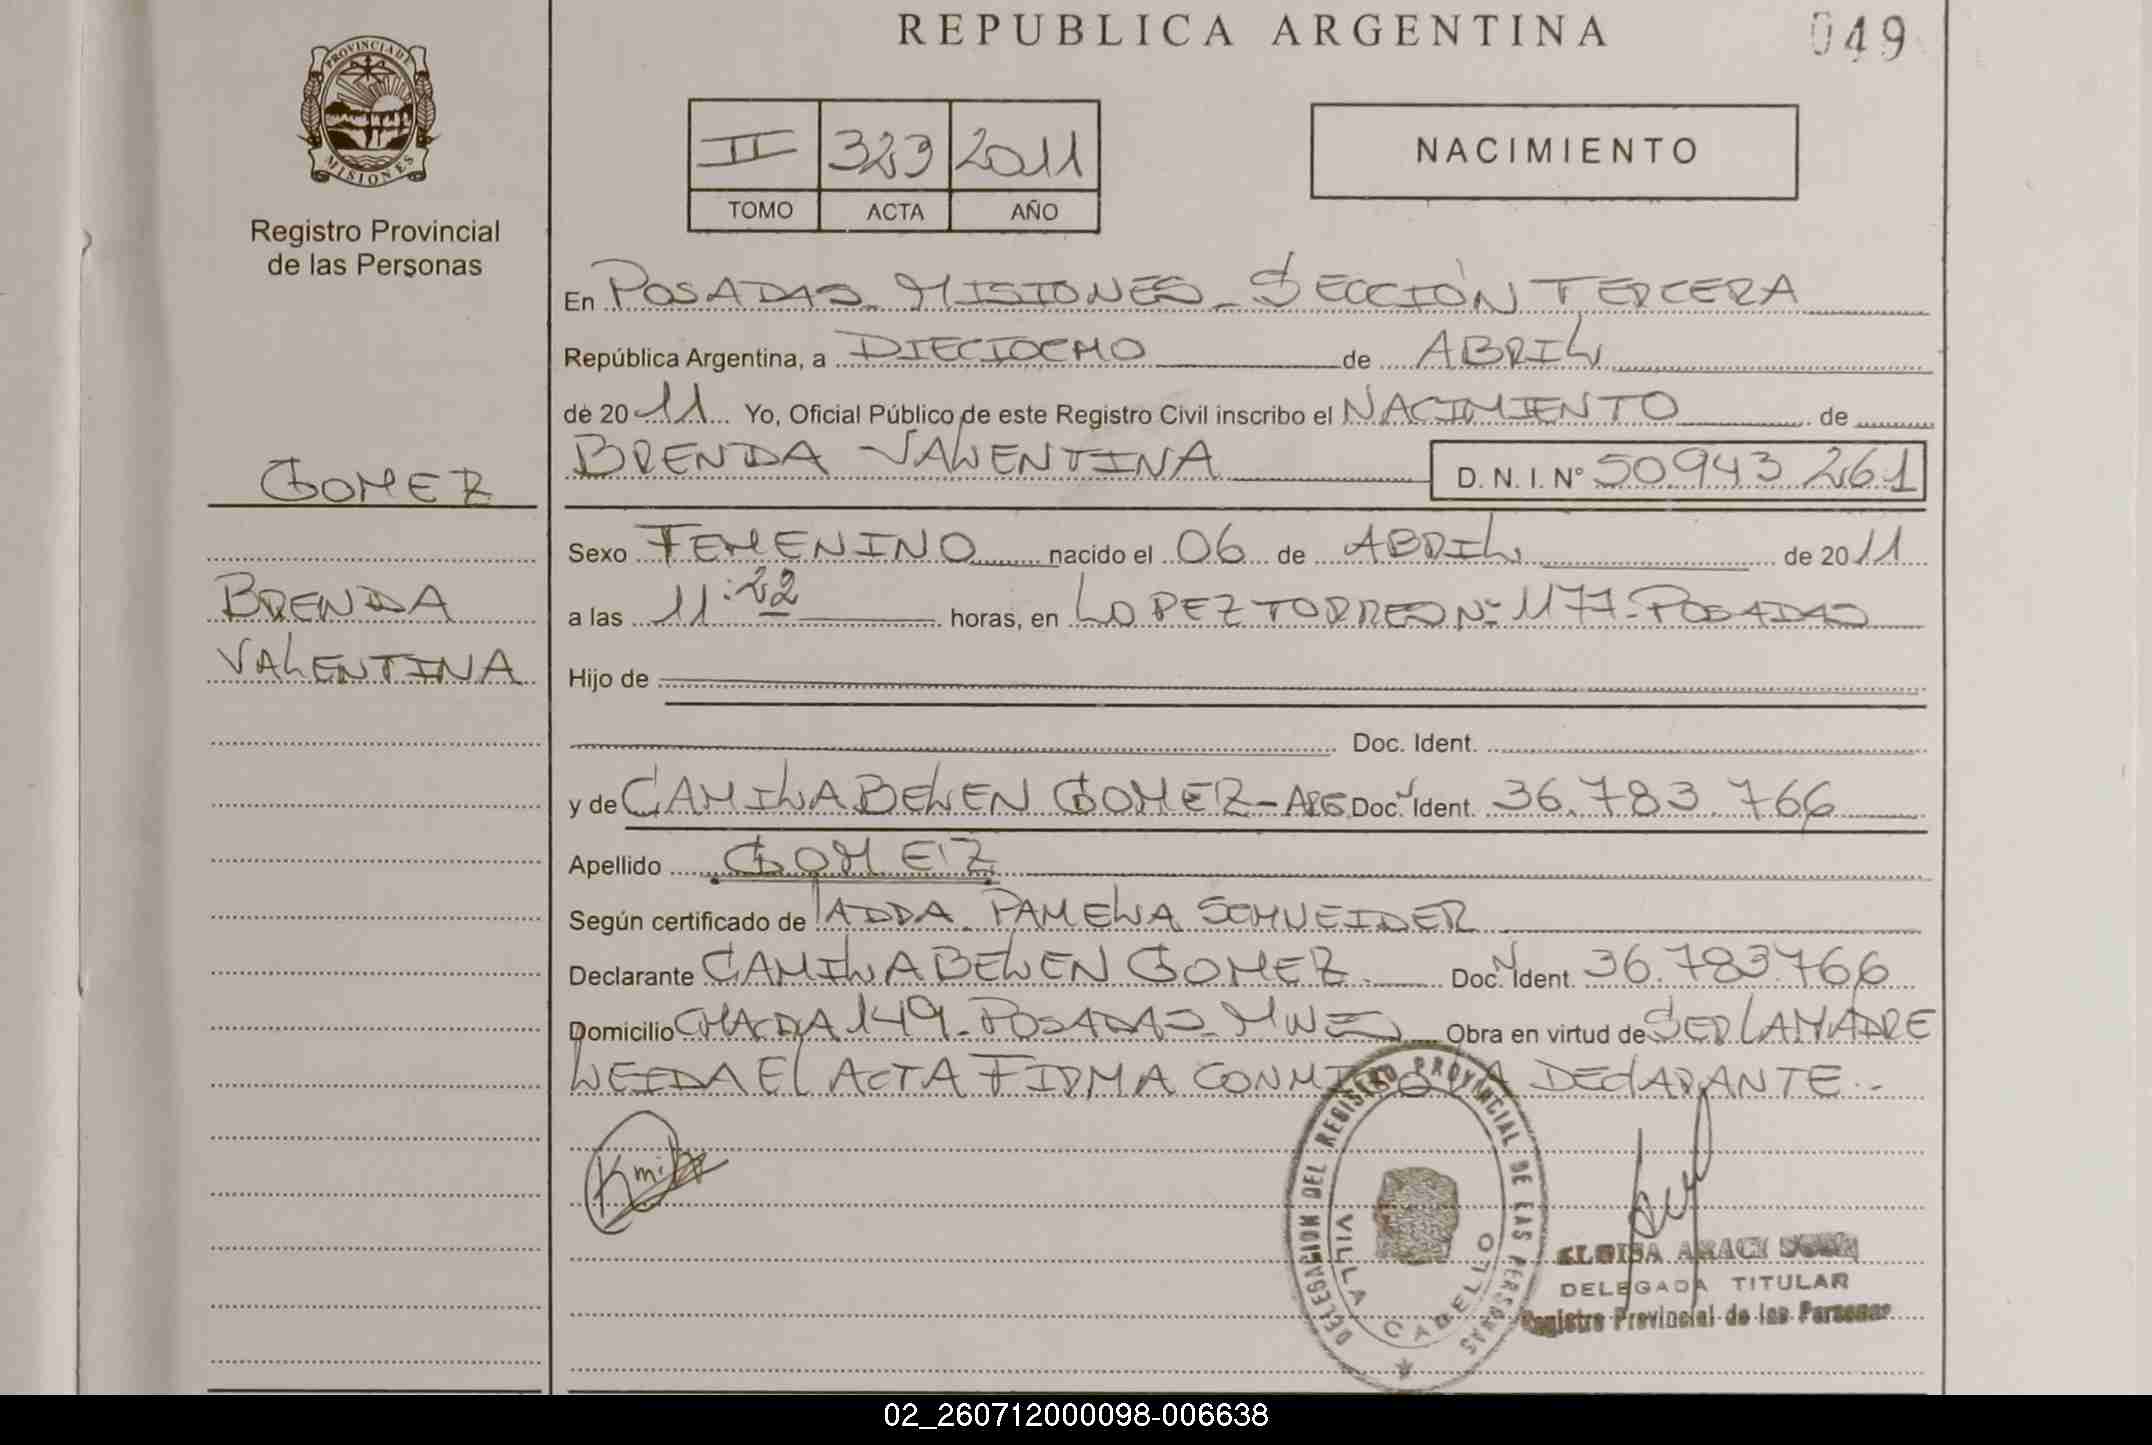 REPUBLICA ARGENTINA
049
PROVINCIA DE MISIONES
Registro Provincial
de las Personas
II 323 2011
TOMO ACTA AÑO
NACIMIENTO
En POSADAS - MISIONES - SECCIÓN TERCERA
República Argentina, a DIECIOCHO de ABRIL
de 2011 Yo, Oficial Público de este Registro Civil inscribo el NACIMIENTO de
BRENDA VALENTINA D. N. I. Nº 50.943.261
GOMEZ
BRENDA
VALENTINA
Sexo FEMENINO nacido el 06 de ABRIL de 2011
a las 11:22 horas, en LOPEZ TORRES Nº 1177 - POSADAS
Hijo de
Doc. Ident.
y de CAMILA BELEN GOMEZ - ARG Doc. Ident. 36.783.766
Apellido GOMEZ
Según certificado de ADDA PAMELA SCHNEIDER
Declarante CAMILA BELEN GOMEZ Doc. Ident. 36.783.766
Domicilio CHACRA 149 - POSADAS - MNES Obra en virtud de SER LA MADRE
LEIDA EL ACTA FIRMA CONMIGO LA DECLARANTE.-
DELEGACION DEL REGISTRO PROVINCIAL DE LAS PERSONAS
VILLA CABELLO
ELOISA ARACI
DELEGADA TITULAR
Registro Provincial de las Personas
02_260712000098-006638